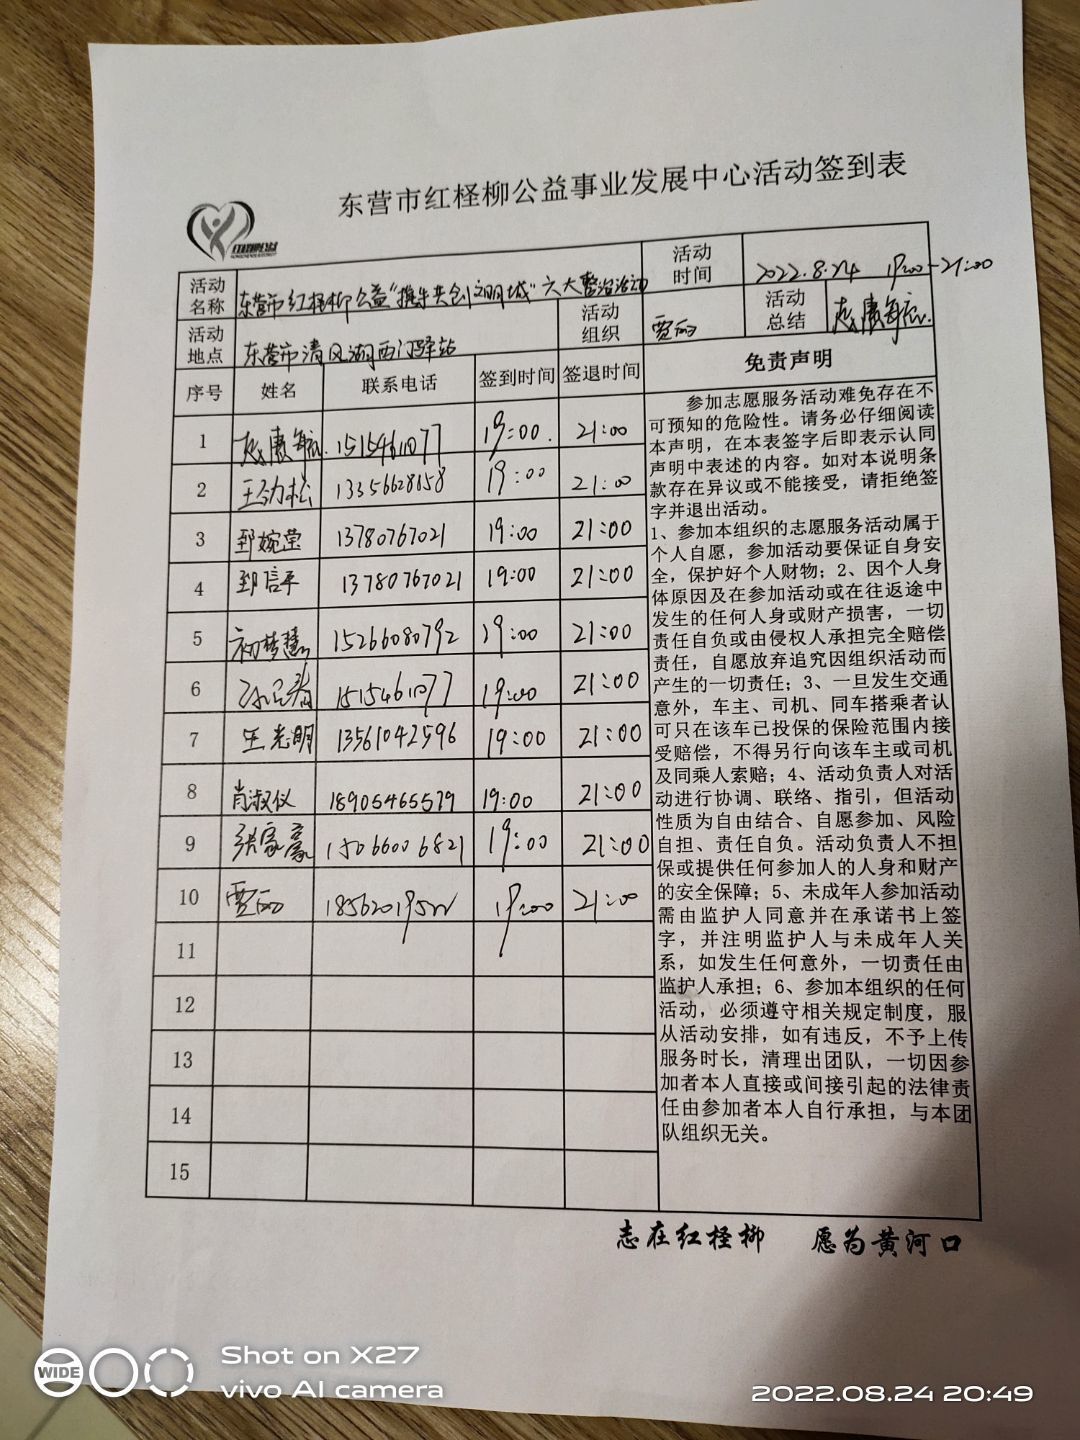 东营市红柽柳公益事业发展中心活动签到表
活动名称 东营市红柽柳公益"携手共创文明城"六大整治活动 活动时间 2022.8.24 19:00-21:00
活动地点 东营市清风湖西门驿站 活动组织 贾丽 活动总结
序号 姓名 联系电话 签到时间 签退时间 免责声明
1 15154611077 19:00 21:00
2 王劲松 13356628158 19:00 21:00
3 郅婉莹 13780767021 19:00 21:00
4 郅信平 13780767021 19:00 21:00
5 初梦慧 15266080792 19:00 21:00
6 15154611077 19:00 21:00
7 王光明 13561042596 19:00 21:00
8 肖淑仪 18905465579 19:00 21:00
9 张家豪 15066006821 19:00 21:00
10 贾丽 19:00 21:00
11
12
13
14
15
参加志愿服务活动难免存在不
可预知的危险性。请务必仔细阅读
本声明，在本表签字后即表示认同
声明中表述的内容。如对本说明条
款存在异议或不能接受，请拒绝签
字并退出活动。
1、参加本组织的志愿服务活动属于
个人自愿，参加活动要保证自身安
全，保护好个人财物；2、因个人身
体原因及在参加活动或在往返途中
发生的任何人身或财产损害，一切
责任自负或由侵权人承担完全赔偿
责任，自愿放弃追究因组织活动而
产生的一切责任；3、一旦发生交通
意外，车主、司机、同车搭乘者认
可只在该车已投保的保险范围内接
受赔偿，不得另行向该车主或司机
及同乘人索赔；4、活动负责人对活
动进行协调、联络、指引，但活动
性质为自由结合、自愿参加、风险
自担、责任自负。活动负责人不担
保或提供任何参加人的人身和财产
的安全保障；5、未成年人参加活动
需由监护人同意并在承诺书上签
字，并注明监护人与未成年人关
系，如发生任何意外，一切责任由
监护人承担；6、参加本组织的任何
活动，必须遵守相关规定制度，服
从活动安排，如有违反，不予上传
服务时长，清理出团队，一切因参
加者本人直接或间接引起的法律责
任由参加者本人自行承担，与本团
队组织无关。
志在红柽柳 愿为黄河口
WIDE
Shot on X27
vivo AI camera
2022.08.24 20:49